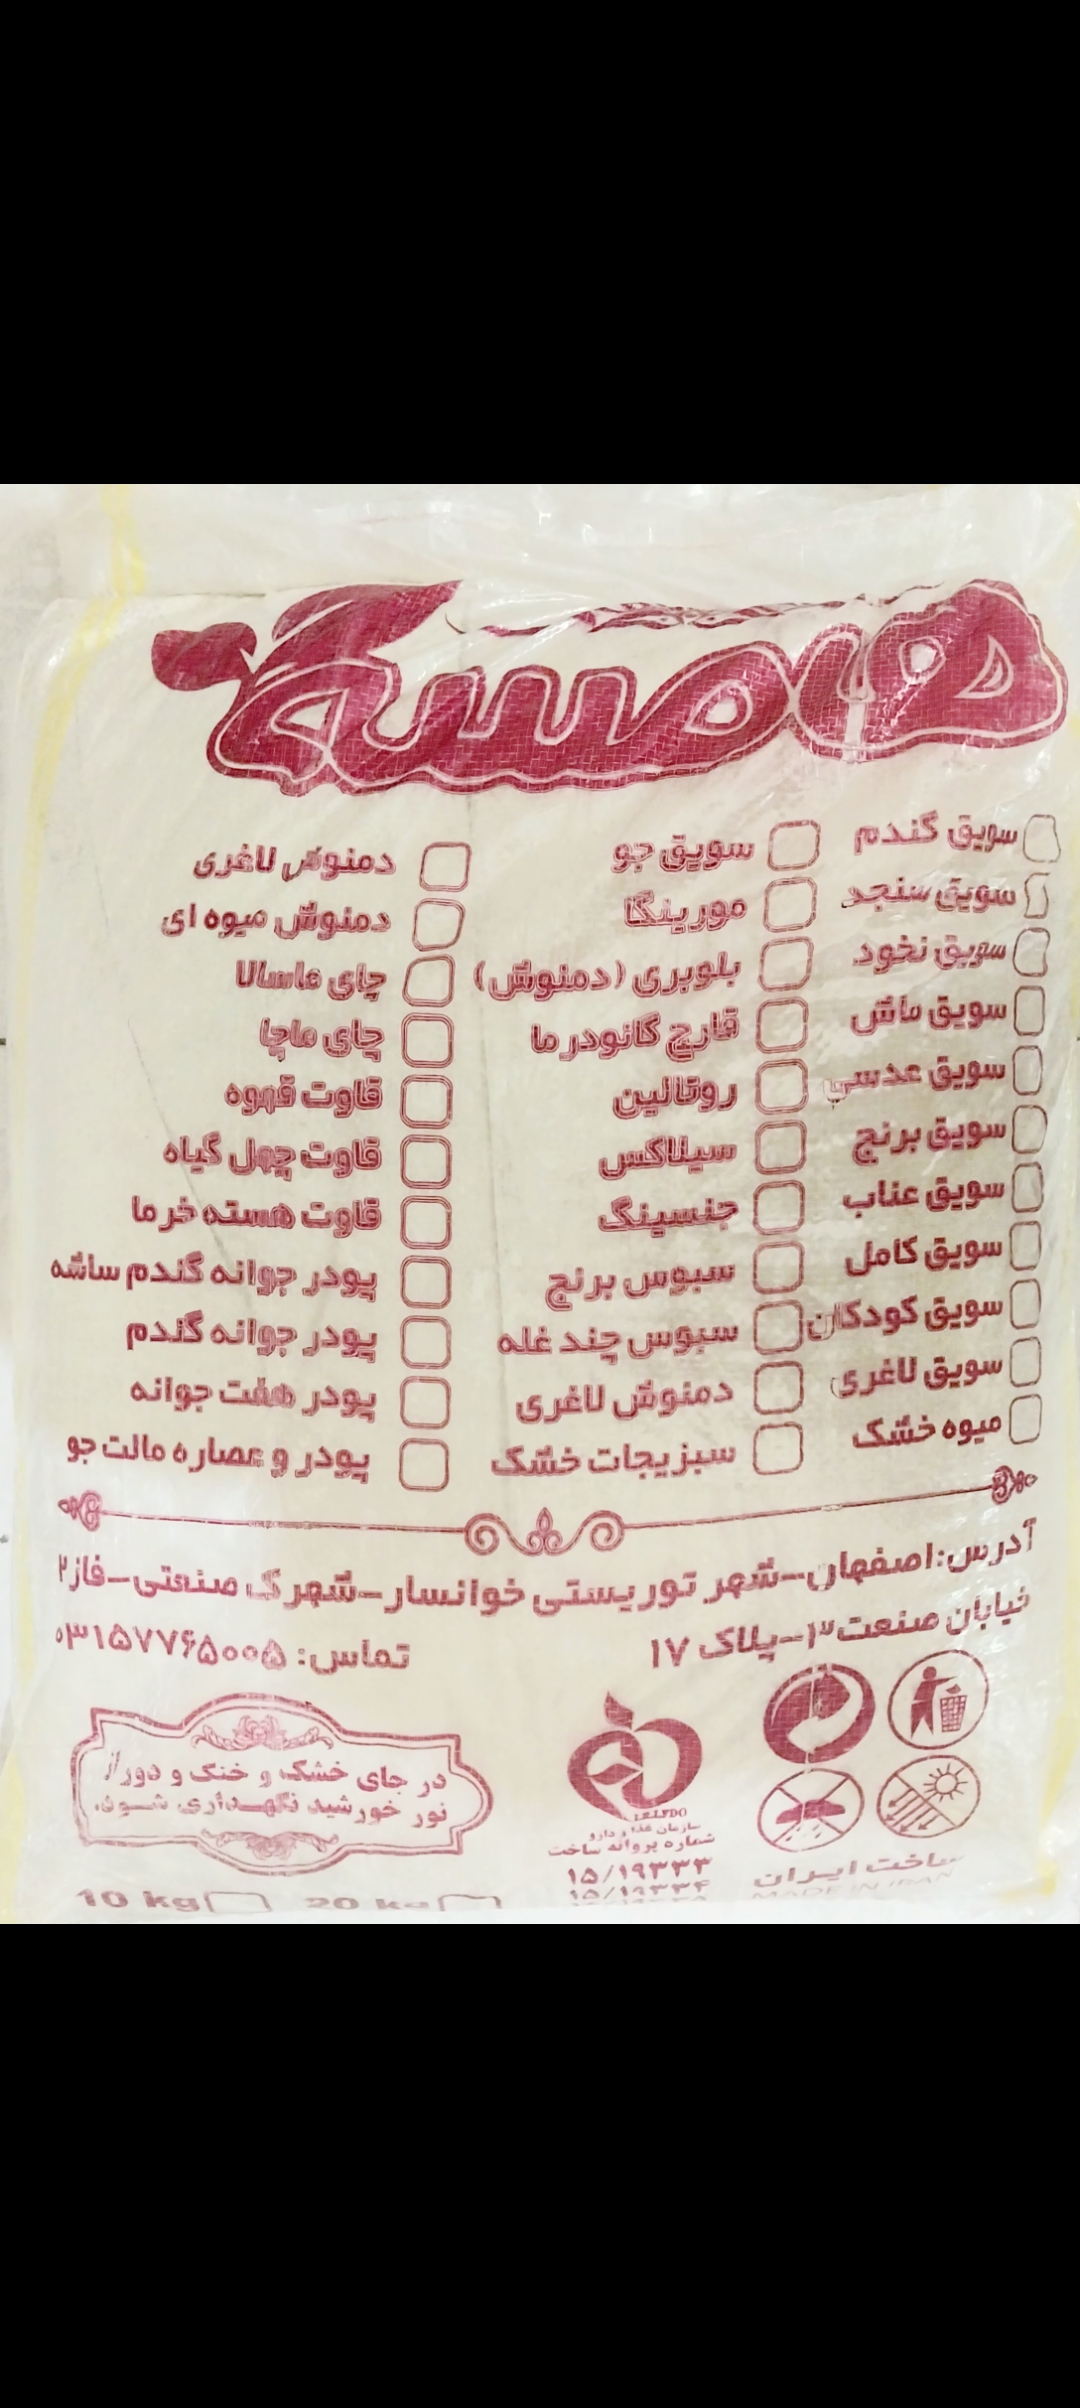 سویق گندم
سویق سنجد
سویق نخود
سویق ماش
سویق عدسی
سویق برنج
سویق عناب
سویق کامل
سویق کودکان
سویق لاغری
میوه خشک
سویق جو
مورینگا
بلوبری (دمنوش)
قارچ گانودر ما
روتالین
سیلاکس
جنسینگ
سبوس برنج
سبوس چند غله
دمنوش لاغری
سبزیجات خشک
دمنوش لاغری
دمنوش میوه ای
چای ماسالا
چای ماچا
قاوت قهوه
قاوت چهل گیاه
قاوت هسته خرما
پودر جوانه گندم ساشه
پودر جوانه گندم
پودر هفت جوانه
پودر و عصاره مالت جو
آدرس:اصفهان-شهر توریستی خوانسار-شهرک صنعتی-فاز۲
خیابان صنعت۳-پلاک ۱۷
تماس: ۰۳۱۵۷۷۶۵۰۰۵
در جای خشک و خنک و دور از
نور خورشید نگهداری شود.
سازمان غذا و دارو
شماره پروانه ساخت
۱۵/۱۹۳۳۳
۱۵/۱۹۳۳۴
ساخت ایران
MADE IN IRAN
10 kg
20 kg